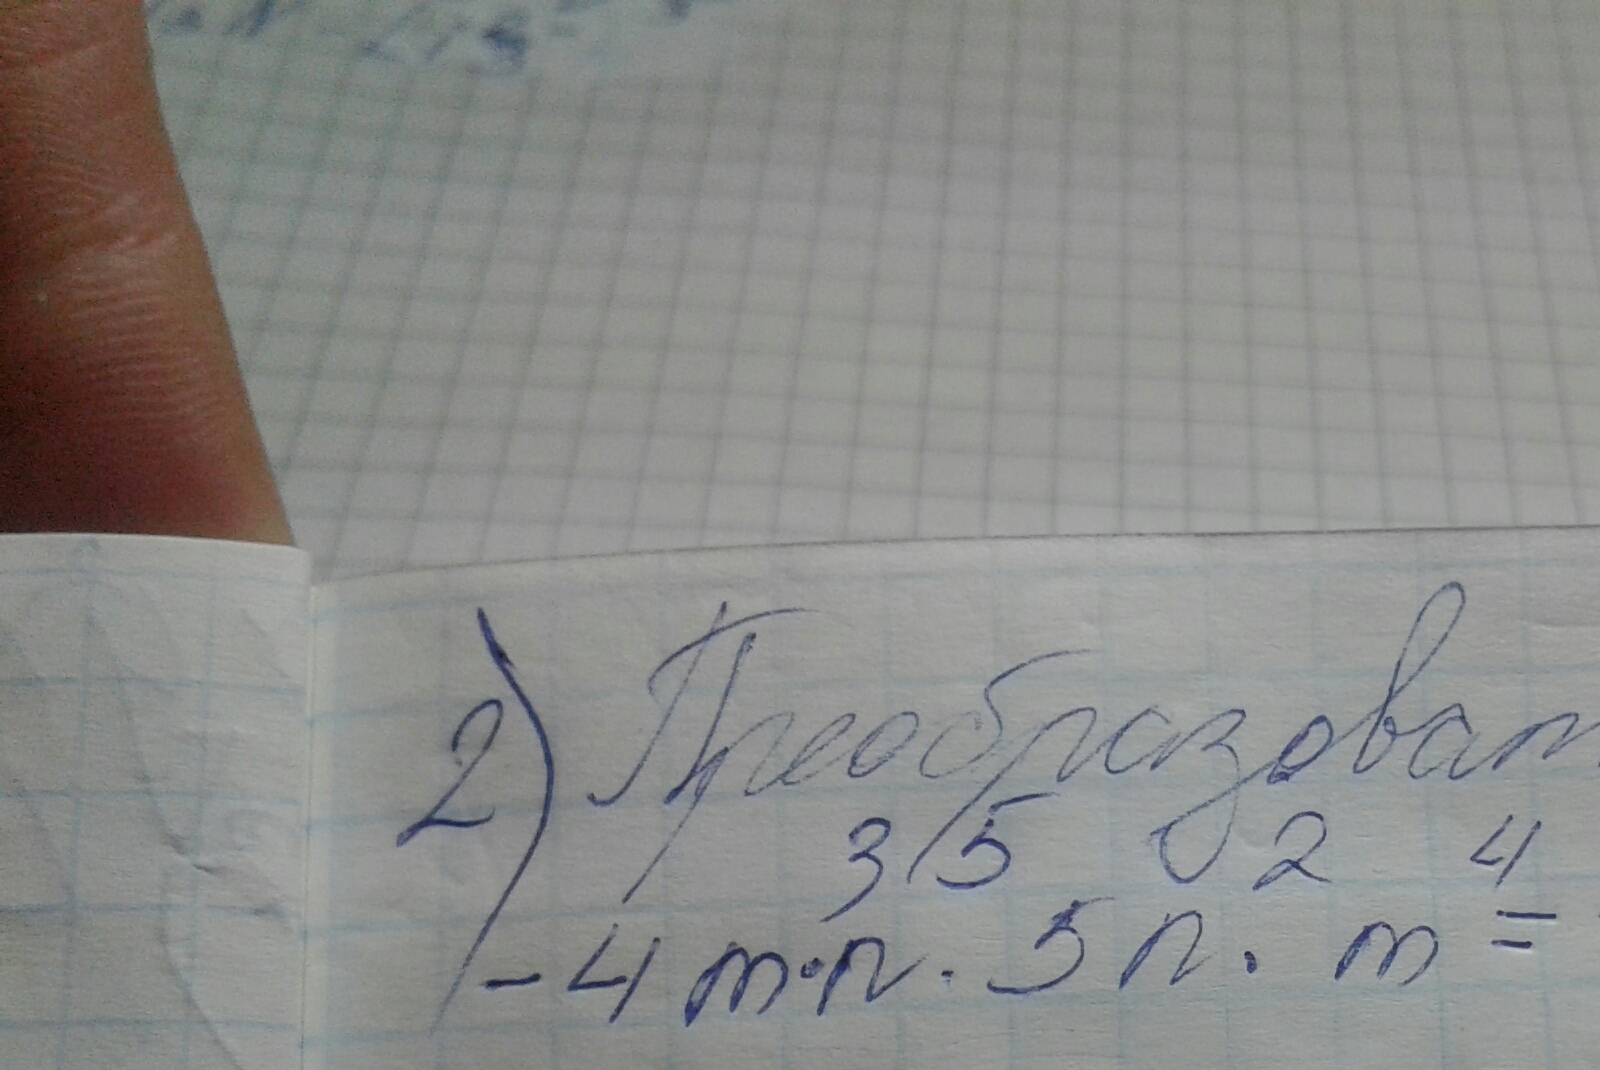 2) Преобразоват
-4m³·n⁵·5n²·m⁴=